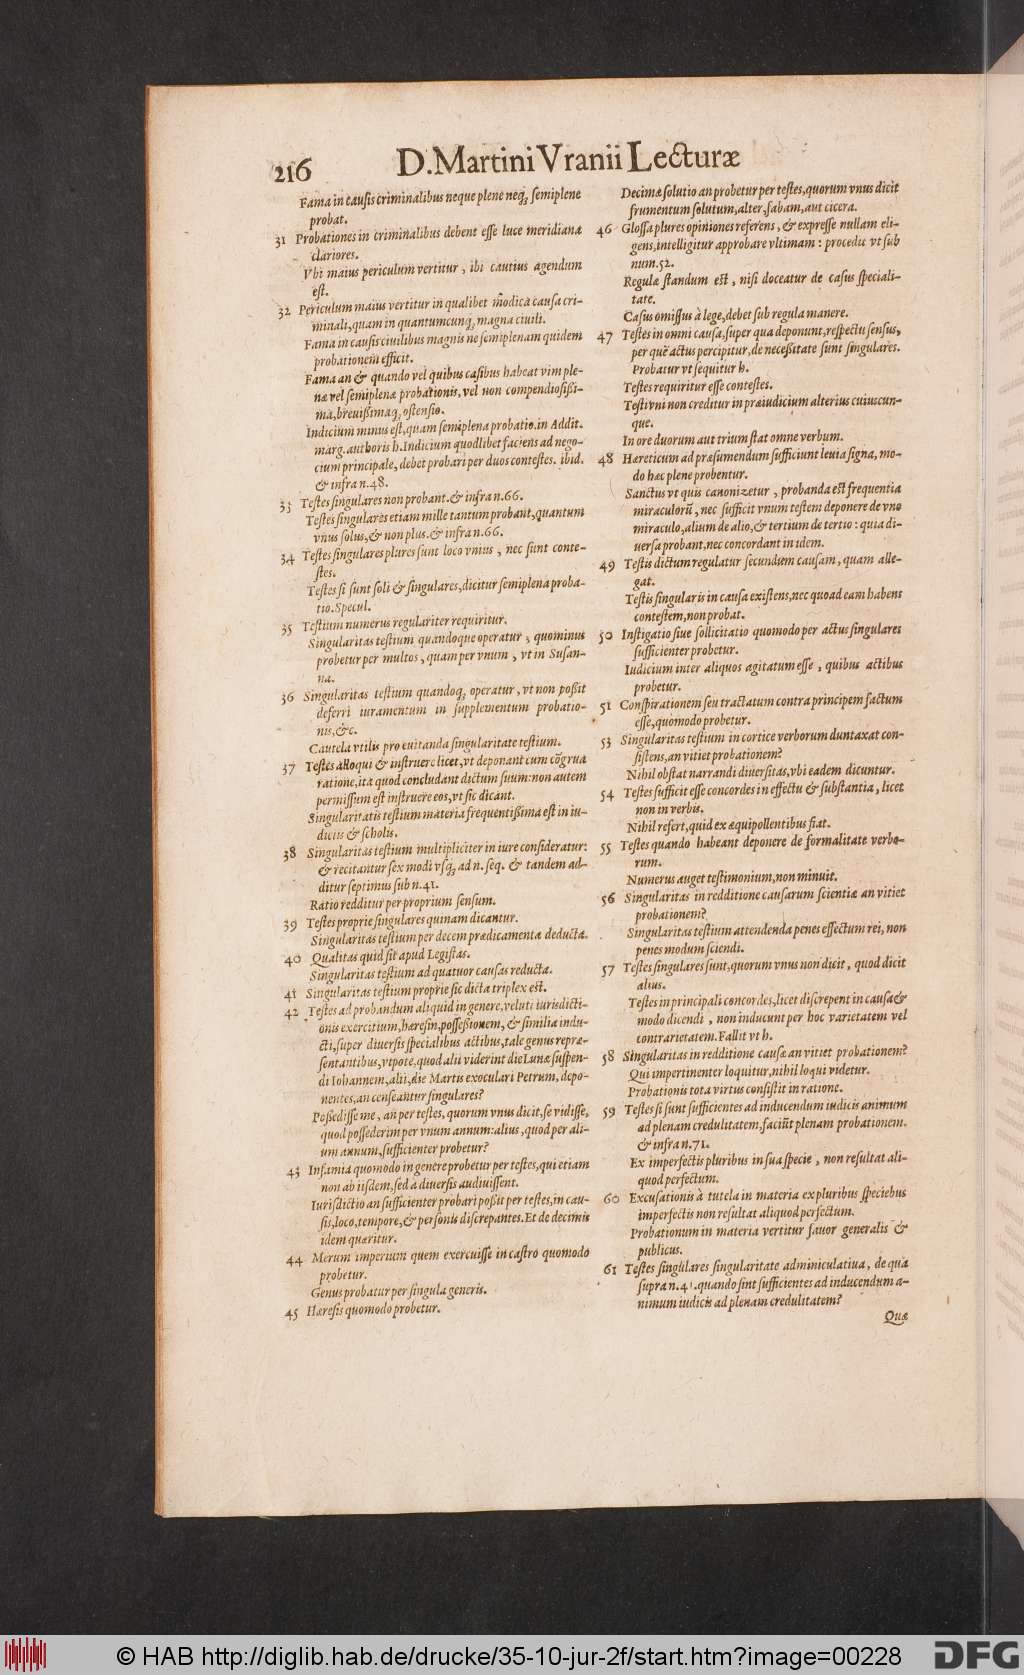 216
D. Martini Vranii Lecturæ
Fama in causis criminalibus neque plene neq; semiplene
probat.
31 Probationes in criminalibus debent esse luce meridiana
clariores.
Vbi maius periculum vertitur, ibi cautius agendum
est.
32 Periculum maius vertitur in qualibet modica causa cri-
minali, quam in quantumcunq; magna ciuili.
Fama in causis ciuilibus magnis ne semiplenam quidem
probationem efficit.
Fama an & quando vel quibus casibus habeat vim ple-
næ vel semiplenæ probationis, vel non compendiosissi-
ma, breuissimaq; ostensio.
Indicium minus est, quam semiplena probatio. in Addit.
marg. authoris h. Indicium quodlibet faciens ad nego-
cium principale, debet probari per duos contestes. ibid.
& infra n. 48.
33 Testes singulares non probant. & infra n. 66.
Testes singulares etiam mille tantum probant, quantum
vnus solus, & non plus. & infra n. 66.
34 Testes singulares plures sunt loco vnius, nec sunt conte-
stes.
Testes si sunt soli & singulares, dicitur semiplena proba-
tio. Specul.
35 Testium numerus regulariter requiritur.
Singularitas testium quandoque operatur, quominus
probetur per multos, quam per vnum, vt in Susan-
na.
36 Singularitas testium quandoq; operatur, vt non possit
deferri iuramentum in supplementum probatio-
nis, &c.
Cautela vtilis pro euitanda singularitate testium.
37 Testes alloqui & instruere licet, vt deponant cum cõgrua
ratione, ita quod concludant dictum suum: non autem
permissum est instruere eos, vt sic dicant.
Singularitatis testium materia frequentissima est in iu-
diciis & scholis.
38 Singularitas testium multipliciter in iure consideratur:
& recitantur sex modi vsq; ad n. seq. & tandem ad-
ditur septimus sub n. 41.
Ratio redditur per proprium sensum.
39 Testes proprie singulares quinam dicantur.
Singularitas testium per decem prædicamenta deducta.
40 Qualitas quid sit apud Legistas.
Singularitas testium ad quatuor causas reducta.
41 Singularitas testium proprie sic dicta triplex est.
42 Testes ad probandum aliquid in genere, veluti iurisdicti-
onis exercitium, hæresin, possessionem, & similia indu-
cti, super diuersis specialibus actibus, tale genus repræ-
sentantibus, vtpote, quod alii viderint die Lunæ suspen-
di Iohannem, alii, die Martis exoculari Petrum, depo-
nentes, an censeantur singulares?
Possedisse me, an per testes, quorum vnus dicit, se vidisse,
quod possederim per vnum annum: alius, quod per ali-
um annum, sufficienter probetur?
43 Infamia quomodo in genere probetur per testes, qui etiam
non ab iisdem, sed a diuersis audiuissent.
Iurisdictio an sufficienter probari possit per testes, in cau-
sis, loco, tempore, & personis discrepantes. Et de decimis
idem quæritur.
44 Merum imperium quem exercuisse in castro quomodo
probetur.
Genus probatur per singula generis.
45 Hæresis quomodo probetur.
Decimæ solutio an probetur per testes, quorum vnus dicit
frumentum solutum, alter, fabam, aut cicera.
46 Glossa plures opiniones referens, & expresse nullam eli-
gens, intelligitur approbare vltimam: procedit vt sub
num. 52.
Regulæ standum est, nisi doceatur de casus speciali-
tate.
Casus omissus à lege, debet sub regula manere.
47 Testes in omni causa, super qua deponunt, respectu sensus,
per quẽ actus percipitur, de necessitate sunt singulares.
Probatur vt sequitur h.
Testes requiritur esse contestes.
Testi vni non creditur in præiudicium alterius cuiuscun-
que.
In ore duorum aut trium stat omne verbum.
48 Hæreticum ad præsumendum sufficiunt leuia signa, mo-
do hæc plene probentur.
Sanctus vt quis canonizetur, probanda est frequentia
miraculorũ, nec sufficit vnum testem deponere de vno
miraculo, alium de alio, & tertium de tertio: quia di-
uersa probant, nec concordant in idem.
49 Testis dictum regulatur secundum causam, quam alle-
gat.
Testis singularis in causa existens, nec quoad eam habens
contestem, non probat.
50 Instigatio siue sollicitatio quomodo per actus singulares
sufficienter probetur.
Iudicium inter aliquos agitatum esse, quibus actibus
probetur.
51 Conspirationem seu tractatum contra principem factum
esse, quomodo probetur.
53 Singularitas testium in cortice verborum duntaxat con-
sistens, an vitiet probationem?
Nihil obstat narrandi diuersitas, vbi eadem dicuntur.
54 Testes sufficit esse concordes in effectu & substantia, licet
non in verbis.
Nihil refert, quid ex æquipollentibus fiat.
55 Testes quando habeant deponere de formalitate verbo-
rum.
Numerus auget testimonium, non minuit.
56 Singularitas in redditione causarum scientiæ an vitiet
probationem?
Singularitas testium attendenda penes effectum rei, non
penes modum sciendi.
57 Testes singulares sunt, quorum vnus non dicit, quod dicit
alius.
Testes in principali concordes, licet discrepent in causa &
modo dicendi, non inducunt per hoc varietatem vel
contrarietatem. Fallit vt h.
58 Singularitas in redditione causæ an vitiet probationem?
Qui impertinenter loquitur, nihil loqui videtur.
Probationis tota virtus consistit in ratione.
59 Testes si sunt sufficientes ad inducendum iudicis animum
ad plenam credulitatem, faciũt plenam probationem.
& infra n. 71.
Ex imperfectis pluribus in sua specie, non resultat ali-
quod perfectum.
60 Excusationis à tutela in materia ex pluribus speciebus
imperfectis non resultat aliquod perfectum.
Probationum in materia vertitur fauor generalis &
publicus.
61 Testes singulares singularitate adminiculatiua, de qua
supra n. 41. quando sint sufficientes ad inducendum a-
nimum iudicis ad plenam credulitatem?
Quæ
© HAB http://diglib.hab.de/drucke/35-10-jur-2f/start.htm?image=00228
DFG